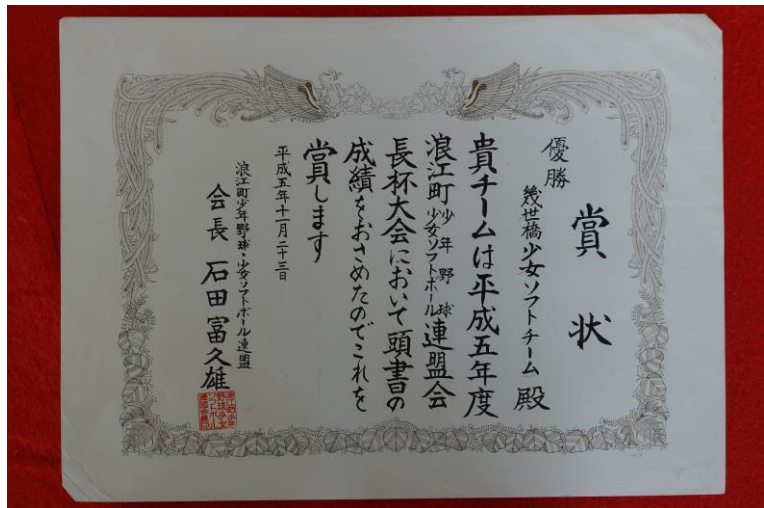 賞状
優勝
幾世橋少女ソフトチーム殿
貴チームは平成五年度
浪江町少年野球少女ソフトボール連盟会
長杯大会において頭書の
成績をおさめたのでこれを
賞します
平成五年十一月二十三日
浪江町少年野球・少女ソフトボール連盟
会長 石田富久雄